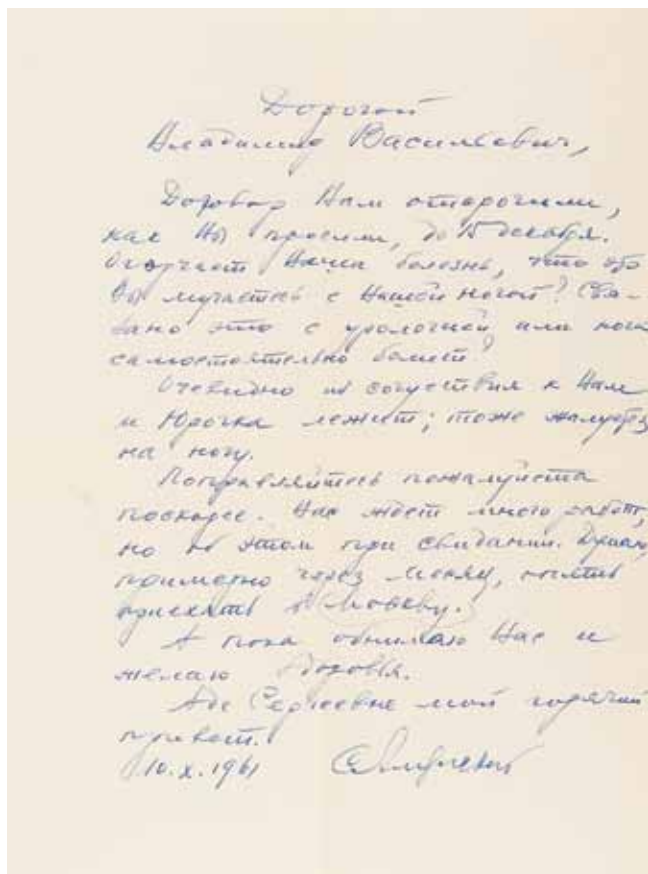 Дорогой
Владимир Васильевич,
Договор Вам отсрочили,
как Вы просили, до 15 декабря.
Огорчает Ваша болезнь, что это
Вы мучаетесь с Вашей ногой? Свя-
зано это с урологией или нога
самостоятельно болит?
Очевидно из сочувствия к Вам
и Юрочка лежит; тоже жалуется
на ногу.
Поправляйтесь пожалуйста
поскорее. Нас ждет много работ,
но об этом при свидании. Думаю,
примерно через месяц, опять
приехать в Москву.
А пока обнимаю Вас и
желаю здоровья.
Аде Сергеевне мой горячий
привет.
10.X.1961